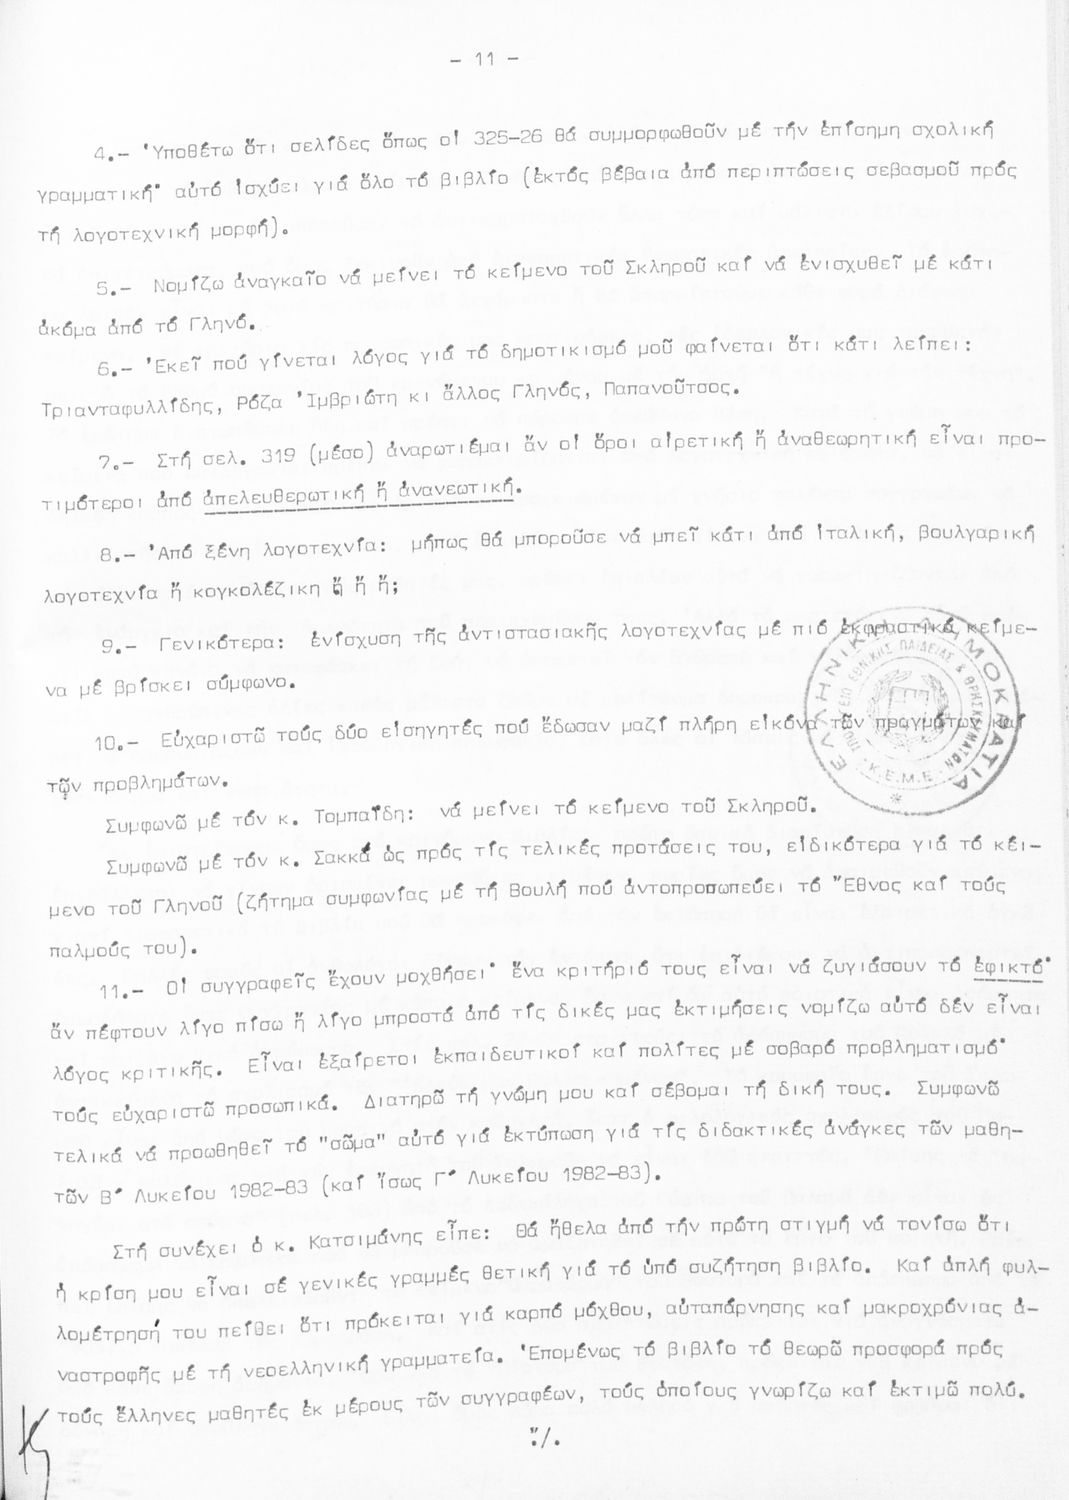 - 11 -
4.- Ὑποθέτω ὅτι σελίδες ὅπως οἱ 325-26 θά συμμορφωθοῦν μέ τήν ἐπίσημη σχολική
γραμματική· αὐτό ἰσχύει γιά ὅλο τό βιβλίο (ἐκτός βέβαια ἀπό περιπτώσεις σεβασμοῦ πρός
τή λογοτεχνική μορφή).
5.- Νομίζω ἀναγκαῖο νά μείνει τό κείμενο τοῦ Σκληροῦ καί νά ἐνισχυθεῖ μέ κάτι
ἀκόμα ἀπό τό Γληνό.
6.- Ἐκεῖ πού γίνεται λόγος γιά τό δημοτικισμό μοῦ φαίνεται ὅτι κάτι λείπει:
Τριανταφυλλίδης, Ρόζα Ἰμβριώτη κι ἄλλος Γληνός, Παπανοῦτσος.
7.- Στή σελ. 319 (μέσο) ἀναρωτιέμαι ἄν οἱ ὅροι αἱρετική ἤ ἀναθεωρητική εἶναι προ-
τιμότεροι ἀπό ἀπελευθερωτική ἤ ἀνανεωτική.
8.- Ἀπό ξένη λογοτεχνία: μήπως θά μποροῦσε νά μπεῖ κάτι ἀπό ἰταλική, βουλγαρική
λογοτεχνία ἤ κογκολέζικη ἤ ἤ ἤ;
9.- Γενικότερα: ἐνίσχυση τῆς ἀντιστασιακῆς λογοτεχνίας μέ πιό ἐκφραστικά κείμε-
να μέ βρίσκει σύμφωνο.
10.- Εὐχαριστῶ τούς δύο εἰσηγητές πού ἔδωσαν μαζί πλήρη εἰκόνα τῶν πραγμάτων καί
τῶν προβλημάτων.
Συμφωνῶ μέ τόν κ. Τομπαΐδη: νά μείνει τό κείμενο τοῦ Σκληροῦ.
Συμφωνῶ μέ τόν κ. Σακκά ὡς πρός τίς τελικές προτάσεις του, εἰδικότερα γιά τό κέι-
μενο τοῦ Γληνοῦ (ζήτημα συμφωνίας μέ τή Βουλή πού ἀντοπροσωπεύει τό Ἔθνος καί τούς
παλμούς του).
11.- Οἱ συγγραφεῖς ἔχουν μοχθήσει· ἕνα κριτήριό τους εἶναι νά ζυγιάσουν τό ἐφικτό·
ἄν πέφτουν λίγο πίσω ἤ λίγο μπροστά ἀπό τίς δικές μας ἐκτιμήσεις νομίζω αὐτό δέν εἶναι
λόγος κριτικῆς. Εἶναι ἐξαίρετοι ἐκπαιδευτικοί καί πολίτες μέ σοβαρό προβληματισμό·
τούς εὐχαριστῶ προσωπικά. Διατηρῶ τή γνώμη μου καί σέβομαι τή δική τους. Συμφωνῶ
τελικά νά προωθηθεῖ τό "σῶμα" αὐτό γιά ἐκτύπωση γιά τίς διδακτικές ἀνάγκες τῶν μαθη-
τῶν Β΄ Λυκείου 1982-83 (καί ἴσως Γ΄ Λυκείου 1982-83).
Στή συνέχει ὁ κ. Κατσιμάνης εἶπε: Θά ἤθελα ἀπό τήν πρώτη στιγμή νά τονίσω ὅτι
ἡ κρίση μου εἶναι σέ γενικές γραμμές θετική γιά τό ὑπό συζήτηση βιβλίο. Καί ἁπλή φυλ-
λομέτρησή του πείθει ὅτι πρόκειται γιά καρπό μόχθου, αὐταπάρνησης καί μακροχρόνιας ἀ-
ναστροφῆς μέ τή νεοελληνική γραμματεία. Ἑπομένως τό βιβλίο τό θεωρῶ προσφορά πρός
τούς ἕλληνες μαθητές ἐκ μέρους τῶν συγγραφέων, τούς ὁποίους γνωρίζω καί ἐκτιμῶ πολύ.
./.
ΕΛΛΗΝΙΚΗ ΔΗΜΟΚΡΑΤΙΑ
ΥΠΟΥΡΓΕΙΟ ΕΘΝΙΚΗΣ ΠΑΙΔΕΙΑΣ & ΘΡΗΣΚΕΥΜΑΤΩΝ
Κ.Ε.Μ.Ε.